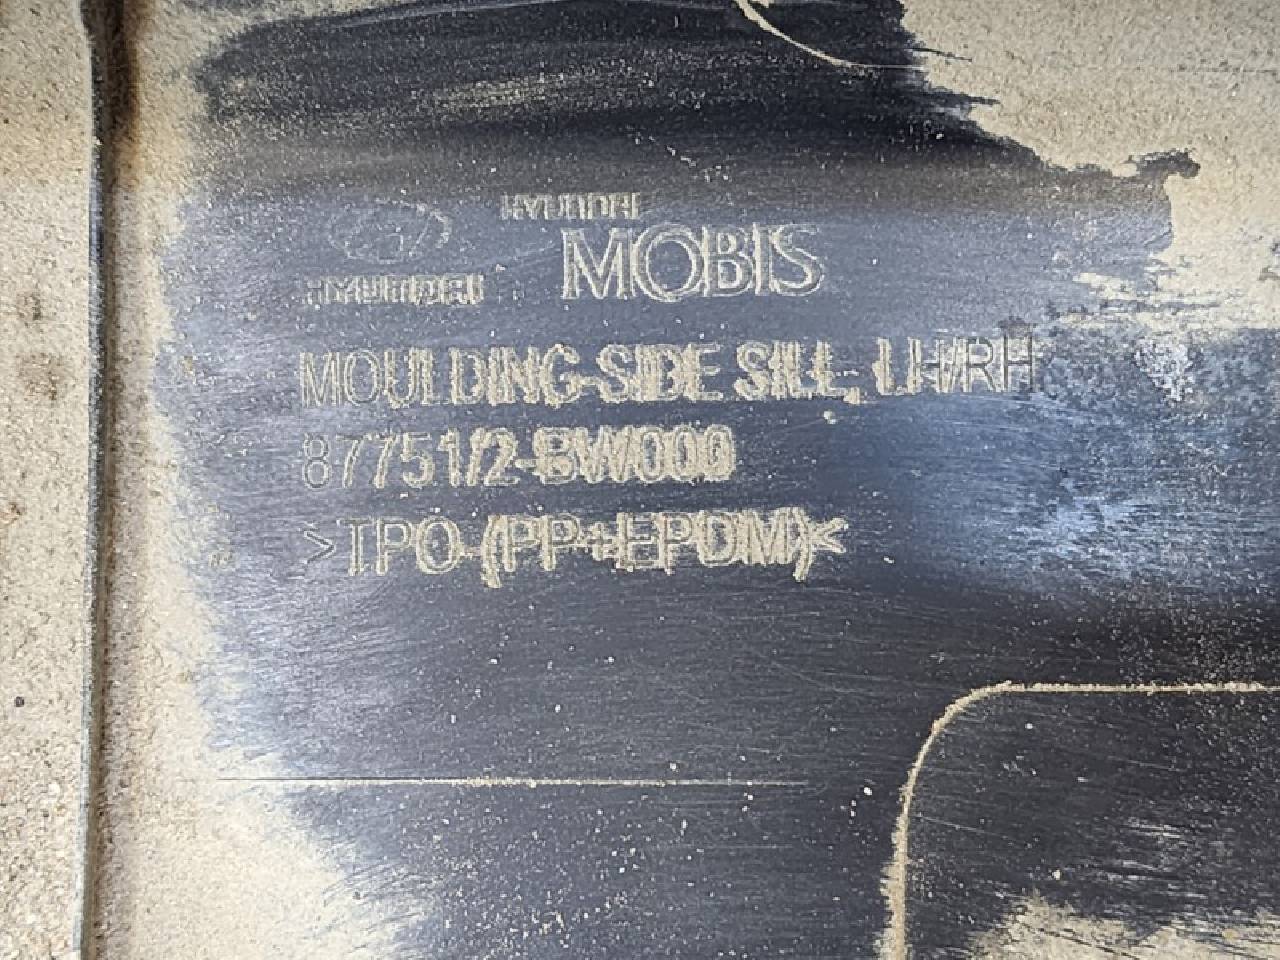 HYUNDAI
MOBIS
HYUNDAI
MOULDING-SIDE SILL, LH/RH
87751/2-BW000
>TPO-(PP+EPDM)<